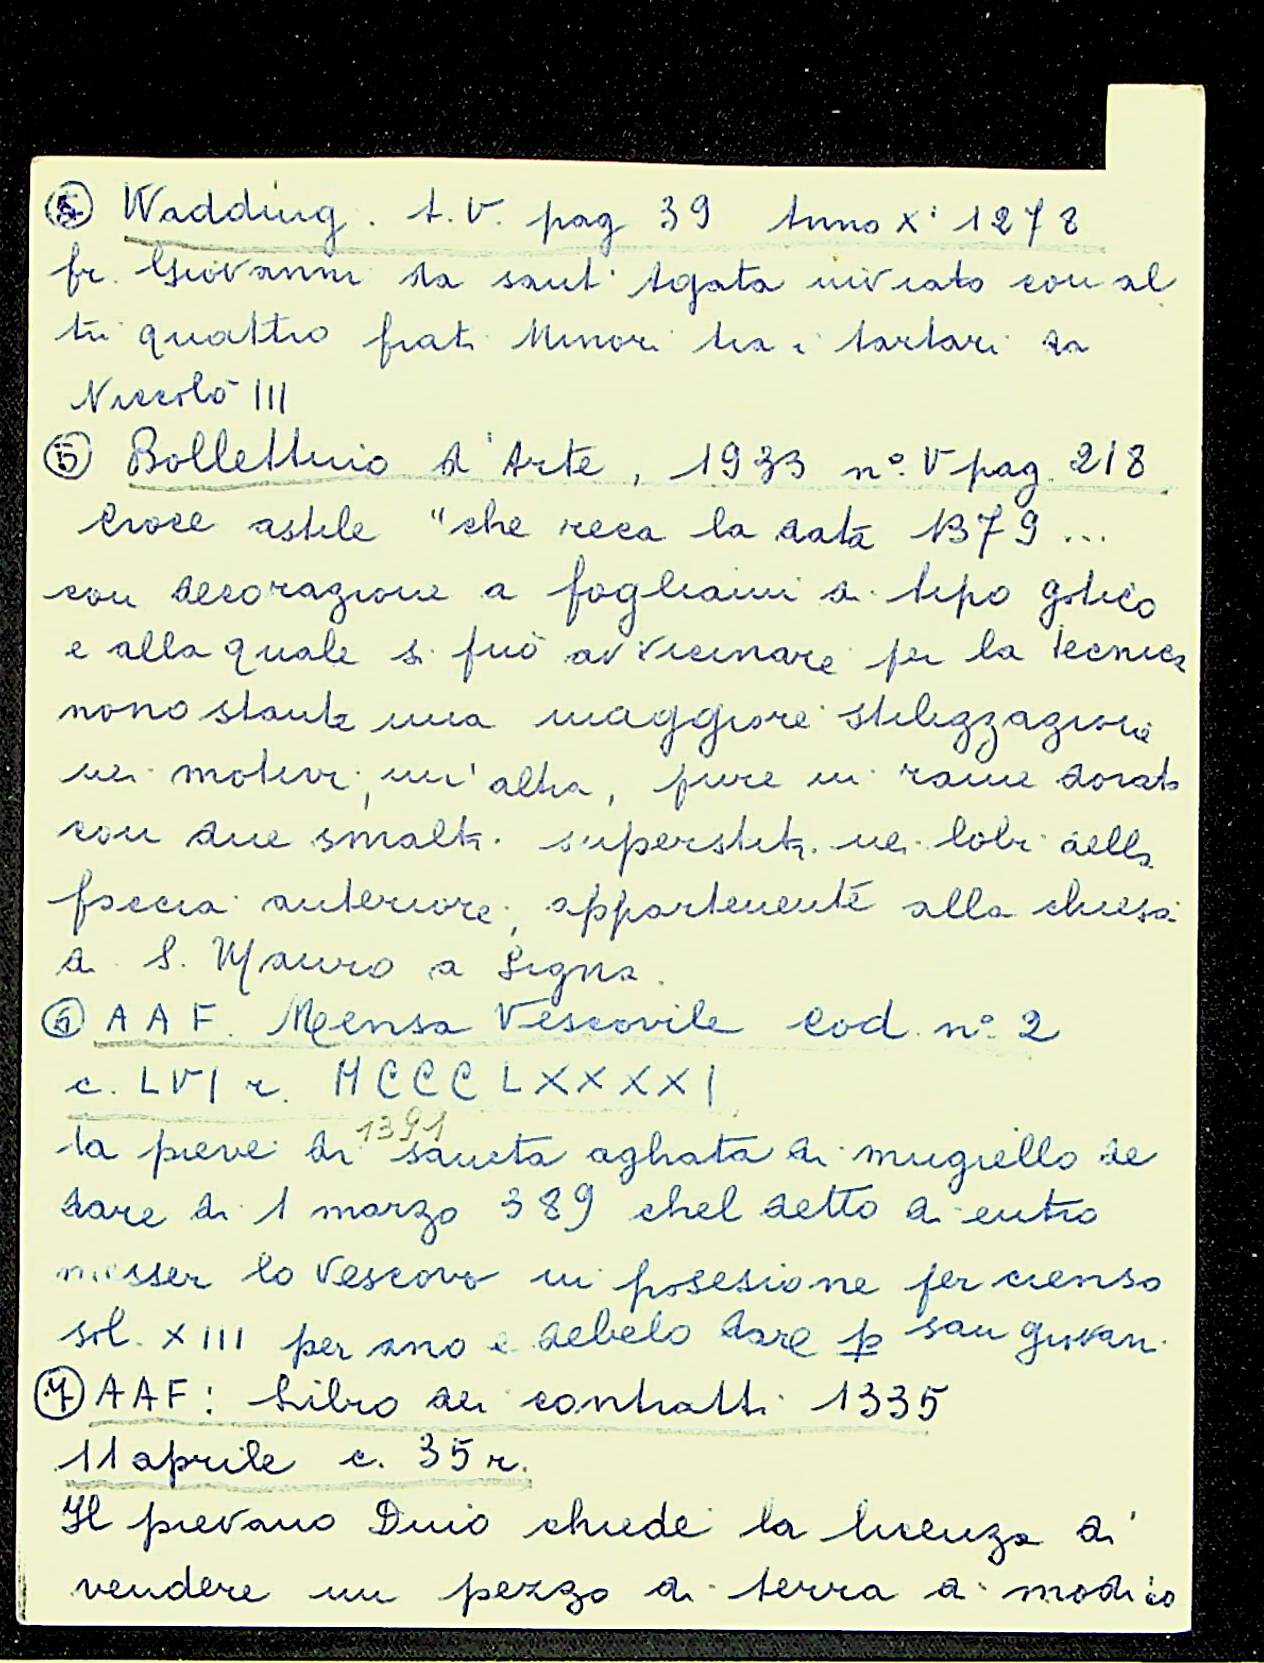 ④ Wadding. t. V. pag 39 Anno X° 1278
fr. Giovanni da sant'Agata inviato con al
tri quattro frati Minori tra i tartari da
Niccolò III
⑤ Bollettino d'Arte, 1933 n° V pag. 218
Croce astile "che reca la data 1379 ...
con decorazione a fogliami di tipo gotico
e alla quale si può avvicinare per la tecnica
nonostante una maggiore stilizzazione
nei motivi, un'altra, pure in rame dorato
con due smalti superstiti nei lobi della
faccia anteriore, appartenente alla chiesa
di S. Mauro a Signa.
⑥ AAF. Mensa Vescovile Cod. n° 2
c. LVI r. MCCCLXXXXI
1391
la pieve di sancta aghata di mugiello de
dare di 1 marzo 389 chel detto di entro
messer lo Vescovo in posesione per cienso
sol. XIII per ano e debelo dare p san giovan.
⑦ AAF: Libro dei contratti 1335
11 aprile c. 35 r.
Il pievano Dino chiede la licenza di
vendere un pezzo di terra di modico